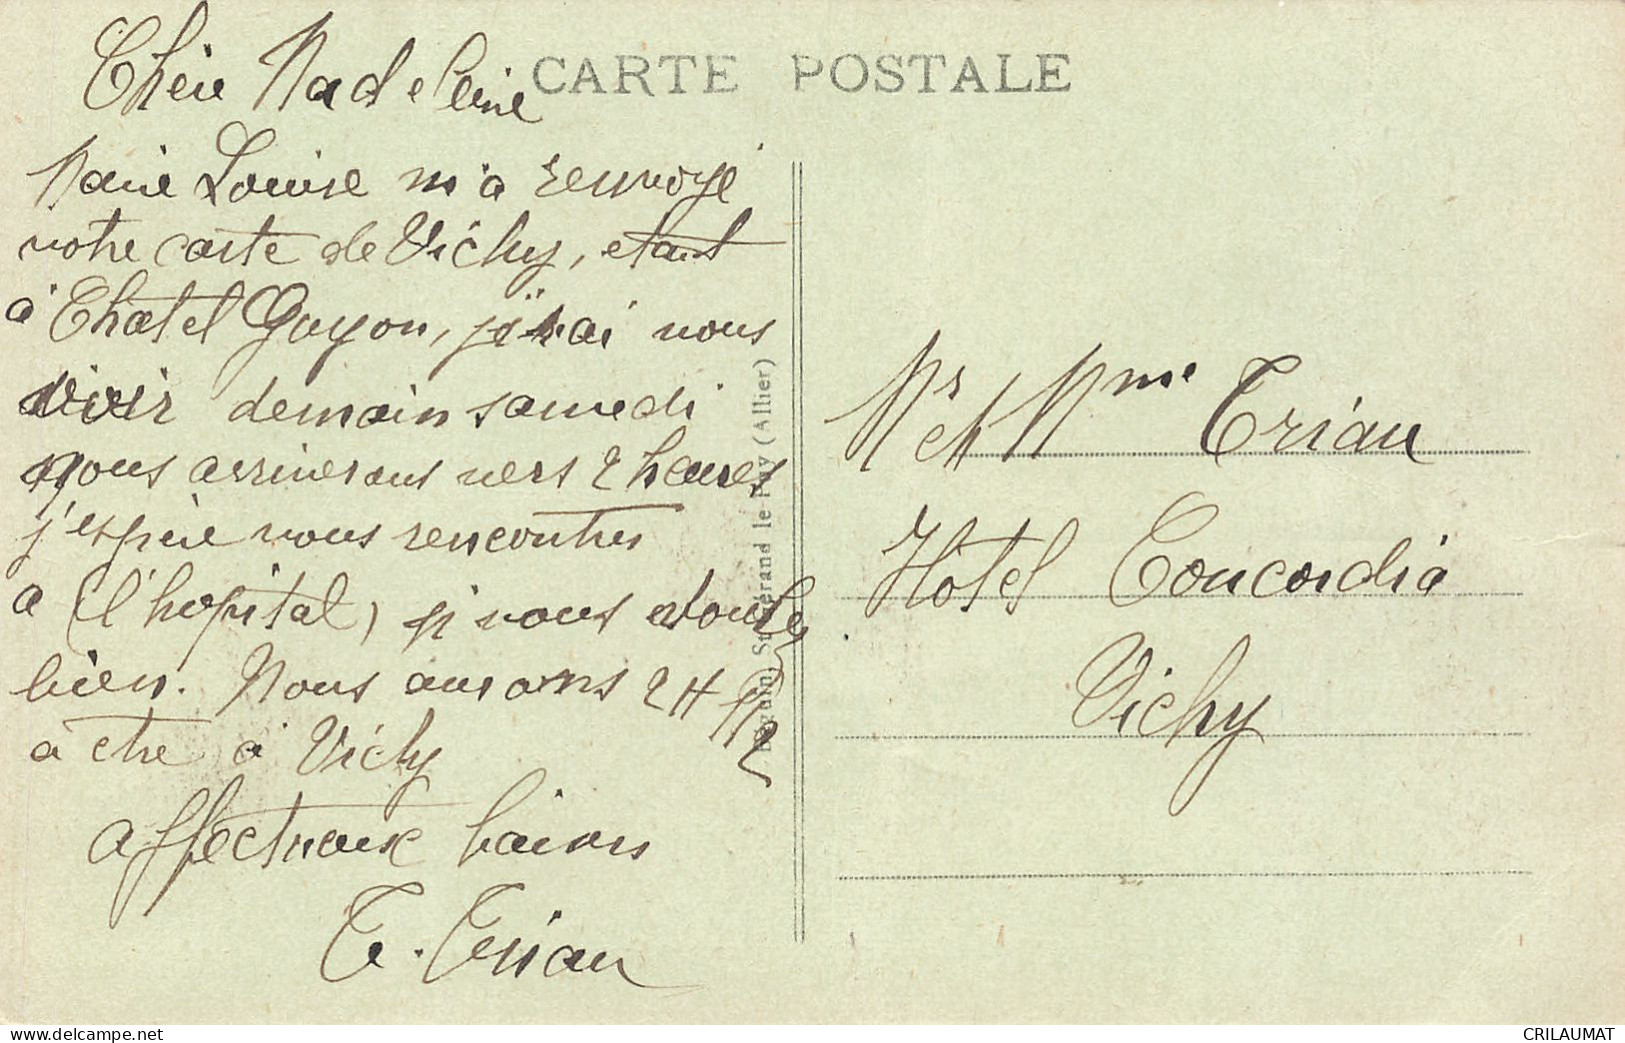 CARTE POSTALE
Chère Madeleine
Marie Louise m'a renvoyé
votre carte de Vichy, etant
à Chatel Guyon, j'irai vous
voir demain samedi
nous arriverons vers 2 heures
j'espère vous rencontrer
a (l'hopital) si vous voulez
bien. Nous aurons 2 H 1/2
à être à Vichy
affectueux baisers
T. Trian
Mr et Mme Trian
Hotel Concordia
Vichy
Suguérand le Puy (Allier)
delcampe.net
CRILAUMAT